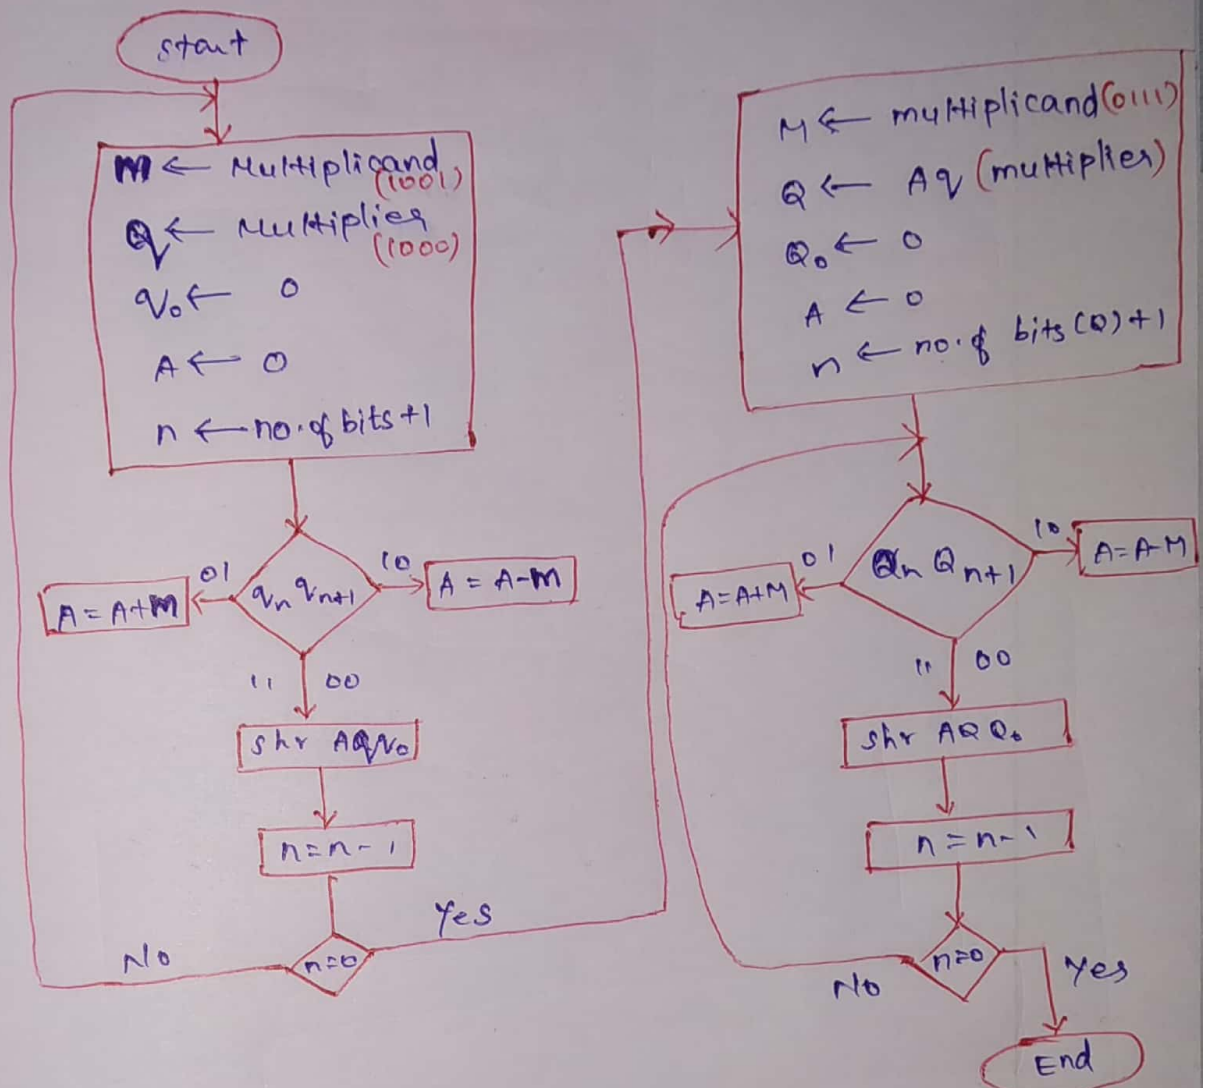 start
M ← Multiplicand
(1001)
Q ← Multiplier
(1000)
q₀ ← 0
A ← 0
n ← no.of bits +1
qₙ qₙ₊₁
01
10
A = A+M
A = A-M
11 00
shr AQq₀
n=n-1
n=0
No
Yes
M ← multiplicand(0111)
Q ← Aq (multiplier)
Q₀ ← 0
A ← 0
n ← no.of bits(Q)+1
Qₙ Qₙ₊₁
01
10
A=A+M
A=A-M
11 00
shr AQ Q₀
n=n-1
n=0
No
Yes
End